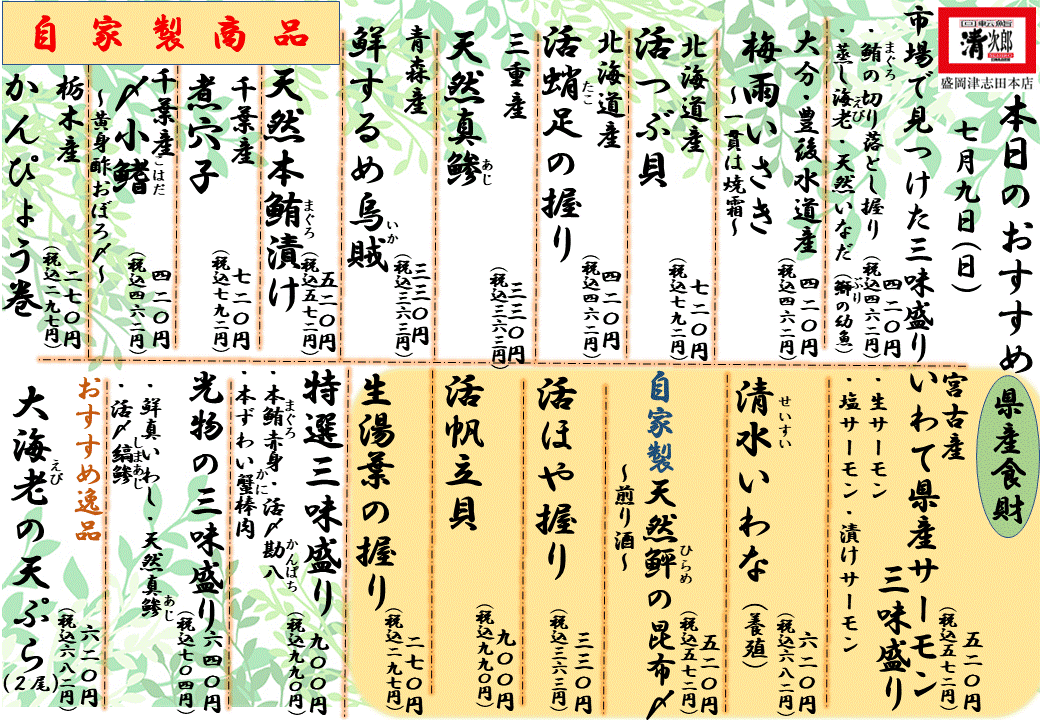 回転鮨
清次郎
盛岡津志田本店
本日のおすすめ
七月九日(日)
市場で見つけた三味盛り
・鮪の切り落とし握り
まぐろ
・蒸し海老・天然いなだ(鰤の幼魚)
えび
ぶり
四二〇円
(税込四六二円)
大分・豊後水道産
梅雨いさき
~一貫は焼霜~
四二〇円
(税込四六二円)
北海道産
活つぶ貝
七二〇円
(税込七九二円)
北海道産
活蛸足の握り
たこ
四二〇円
(税込四六二円)
三重産
天然真鯵
あじ
三三〇円
(税込三六三円)
青森産
鮮するめ烏賊
いか
三三〇円
(税込三六三円)
自家製商品
天然本鮪漬け
まぐろ
五二〇円
(税込五七二円)
千葉産
煮穴子
七二〇円
(税込七九二円)
千葉産
〆小鰭
こはだ
~黄身酢おぼろ〆~
四二〇円
(税込四六二円)
栃木産
かんぴょう巻
二七〇円
(税込二九七円)
県産食財
宮古産
いわて県産サーモン
三味盛り
・生サーモン
・塩サーモン・漬けサーモン
五二〇円
(税込五七二円)
清水いわな
せいすい
(養殖)
六二〇円
(税込六八二円)
自家製天然鮃の昆布〆
ひらめ
~煎り酒~
五二〇円
(税込五七二円)
活ほや握り
三三〇円
(税込三六三円)
活帆立貝
九〇〇円
(税込九九〇円)
生湯葉の握り
二七〇円
(税込二九七円)
特選三味盛り
・本鮪赤身・活〆勘八
まぐろ
かんぱち
・本ずわい蟹棒肉
かに
九〇〇円
(税込九九〇円)
光物の三味盛り
・鮮真いわし・天然真鯵
あじ
・活〆縞鯵
しまあじ
六四〇円
(税込七〇四円)
おすすめ逸品
大海老の天ぷら(2尾)
えび
六二〇円
(税込六八二円)